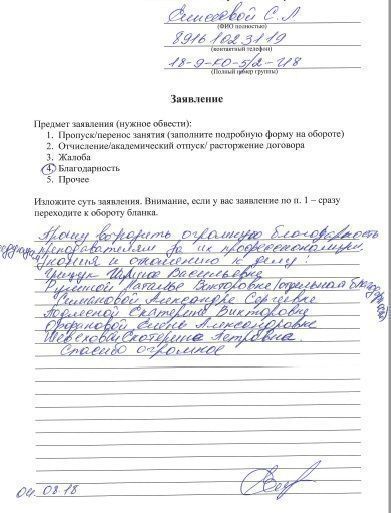 Елисеевой С. Л.
(ФИО полностью)
89161023119
(контактный телефон)
18-9-КО-5/2-И8
(Полный номер группы)
Заявление
Предмет заявления (нужное обвести):
1. Пропуск/перенос занятия (заполните подробную форму на обороте)
2. Отчисление/академический отпуск/ расторжение договора
3. Жалоба
4. Благодарность
5. Прочее
Изложите суть заявления. Внимание, если у вас заявление по п. 1 – сразу
переходите к обороту бланка.
Прошу выразить огромную благодарность
преподавателям за их профессионализм,
знания и отношению к делу:
Грищук Ирине Васильевне
Наталье Викторовне (отдельная
Симаковой Александре Сергеевне
Екатерине Викторовне
Елене Александровне
Екатерина Петровна.
Спасибо огромное
04.08.18